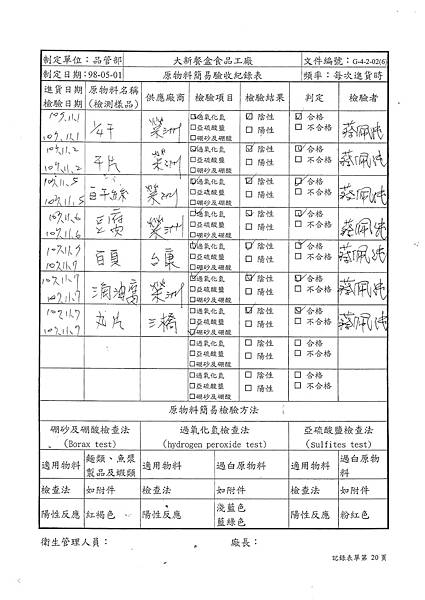 制定單位：品管部 大新餐盒食品工廠 文件編號：G-4-2-02(6)
制定日期：98-05-01 原物料簡易驗收紀錄表 頻率：每次進貨時
進貨日期 原物料名稱 供應廠商 檢驗項目 檢驗結果 判定 檢驗者
檢驗日期 (檢測樣品)
107.11.1 ☑過氧化氫 ☑ 陰性 ☑ 合格
107.11.1 1/4干 榮洲 □亞硫酸鹽 □ 陽性 □ 不合格
□硼砂及硼酸
107.11.2 ☑過氧化氫 ☑ 陰性 ☑ 合格
107.11.2 干片 榮洲 □亞硫酸鹽 □ 陽性 □ 不合格
□硼砂及硼酸
107.11.5 ☑過氧化氫 ☑ 陰性 ☑ 合格
107.11.5 白干絲 榮洲 □亞硫酸鹽 □ 陽性 □ 不合格
□硼砂及硼酸
107.11.6 ☑過氧化氫 ☑ 陰性 ☑ 合格
107.11.6 豆腐 榮洲 □亞硫酸鹽 □ 陽性 □ 不合格
□硼砂及硼酸
☑過氧化氫 ☑ 陰性 ☑ 合格
107.11.7 百頁 台東 □亞硫酸鹽 □ 陽性 □ 不合格
□硼砂及硼酸
107.11.7 ☑過氧化氫 ☑ 陰性 ☑ 合格
107.11.7 油腐 榮洲 □亞硫酸鹽 □ 陽性 □ 不合格
□硼砂及硼酸
107.11.7 □過氧化氫 ☑ 陰性 ☑ 合格
107.11.7 丸片 三橋 □亞硫酸鹽 □ 陽性 □ 不合格
☑硼砂及硼酸
□過氧化氫 □ 陰性 □ 合格
□亞硫酸鹽 □ 陽性 □ 不合格
□硼砂及硼酸
□過氧化氫 □ 陰性 □ 合格
□亞硫酸鹽 □ 陽性 □ 不合格
□硼砂及硼酸
原物料簡易檢驗方法
硼砂及硼酸檢查法 過氧化氫檢查法 亞硫酸鹽檢查法
(Borax test) (hydrogen peroxide test) (Sulfites test)
適用物料 麵類、魚漿製品及蝦類 適用物料 過白原物料 適用物料 過白原物料
檢查法 如附件 檢查法 如附件 檢查法 如附件
陽性反應 紅褐色 陽性反應 淺藍色 藍綠色 陽性反應 粉紅色
衛生管理人員： 廠長：
記錄表單第 20 頁